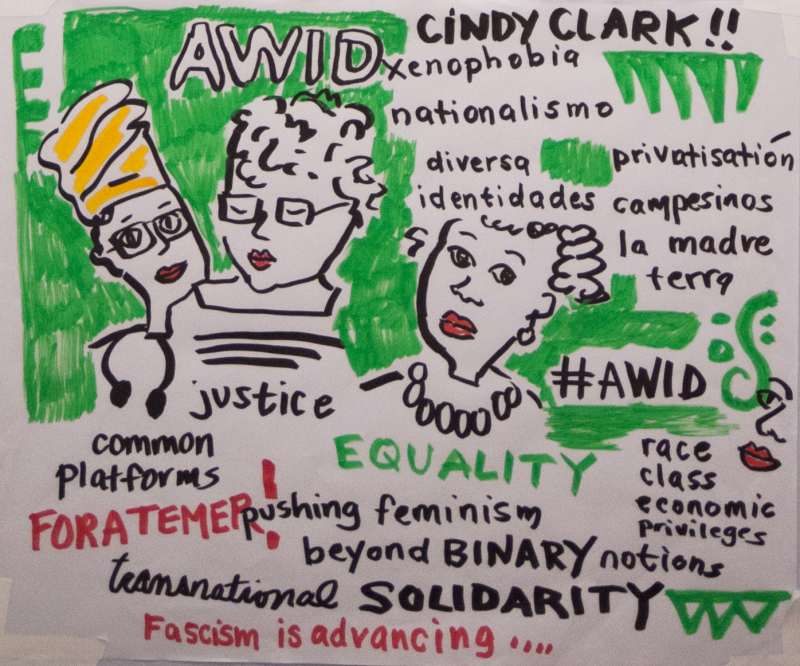 AWID
CiNDY CLARK!!
xenophobia
nationalismo
diversa
identidades
privatisatión
campesinos
la madre
terra
#AWID
justice
common
platforms
EQUALITY
race
class
economic
privileges
FORATEMER!
pushing feminism
beyond BINARY notions
transnational SOLIDARITY
Fascism is advancing ....